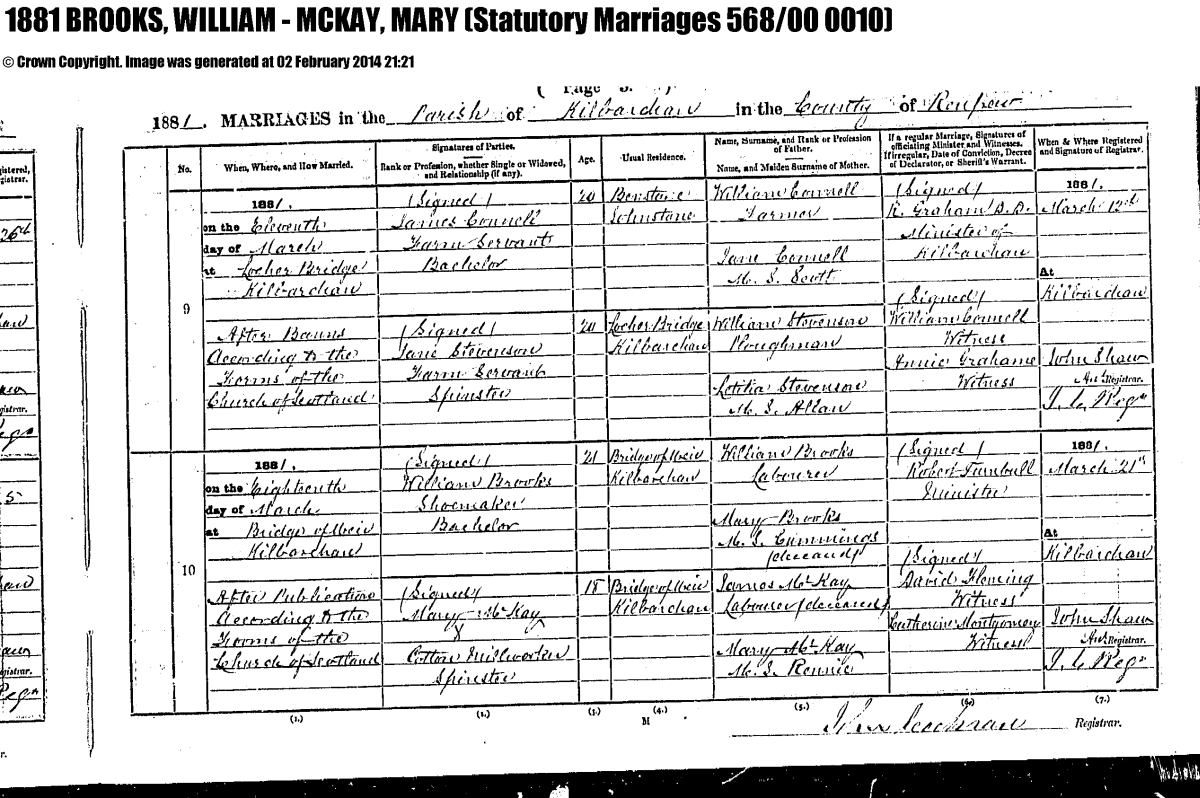 1881 BROOKS, WILLIAM - MCKAY, MARY (Statutory Marriages 568/00 0010)
© Crown Copyright. Image was generated at 02 February 2014 21:21
( Page 5. )
1881. MARRIAGES in the Parish of Kilbarchan in the County of Renfrew
No.
When, Where, and How Married.
Signatures of Parties.
Rank or Profession, whether Single or Widowed,
and Relationship (if any).
Age.
Usual Residence.
Name, Surname, and Rank or Profession
of Father.
Name, and Maiden Surname of Mother.
If a regular Marriage, Signatures of
officiating Minister and Witnesses.
If irregular, Date of Conviction, Decree
of Declarator, or Sheriff's Warrant.
When & Where Registered
and Signature of Registrar.
9
1881.
on the Eleventh
day of March
at Locher Bridge
Kilbarchan
After Banns
According to the
Forms of the
Church of Scotland
(Signed)
James Connell
Farm Servant
Bachelor
(Signed)
Jane Stevenson
Farm Servant
Spinster
20
20
Johnstone
Locher Bridge
Kilbarchan
William Connell
Farmer
Jane Connell
M. S. Scott
William Stevenson
Ploughman
Letitia Stevenson
M. S. Allan
(Signed)
R. Graham D.D.
Minister of
Kilbarchan
(Signed)
William Connell
Witness
Annie Grahame
Witness
1881.
March 12th
At
Kilbarchan
John Shaw
Asst Registrar.
J. C. Regr
10
1881.
on the Eighteenth
day of March
at Bridge of Weir
Kilbarchan
After Publication
According to the
Forms of the
Church of Scotland
(Signed)
William Brooks
Shoemaker
Bachelor
(Signed)
Mary McKay
Cotton Millworker
Spinster
21
18
Bridge of Weir
Kilbarchan
Bridge of Weir
Kilbarchan
William Brooks
Labourer
Mary Brooks
M. S. Cummings
(deceased)
James McKay
Labourer (deceased)
Mary McKay
M. S. Rennie
(Signed)
Robert Turnbull
Minister
(Signed)
David Fleming
Witness
Catherine Montgomery
Witness
1881.
March 21st
At
Kilbarchan
John Shaw
Asst Registrar.
J. C. Regr
(1.) (2.) (3.) (4.) (5.) (6.) (7.)
M
Cochran Registrar.